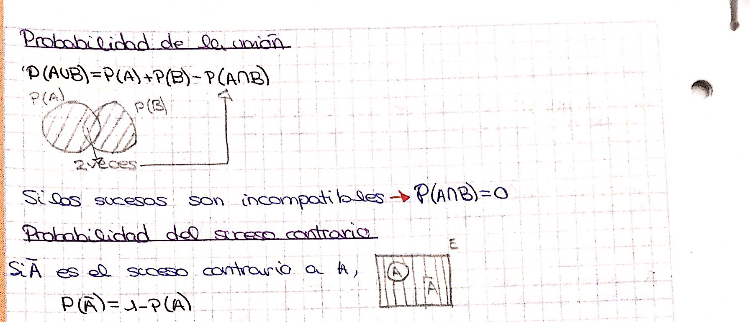 Probabilidad de la unión
P(A∪B)=P(A)+P(B)-P(A∩B)
P(A)
P(B)
2 veces
Si los sucesos son incompatibles → P(A∩B)=0
Probabilidad del suceso contrario
E
Si Ā es el suceso contrario a A,
A
Ā
P(Ā)=1-P(A)